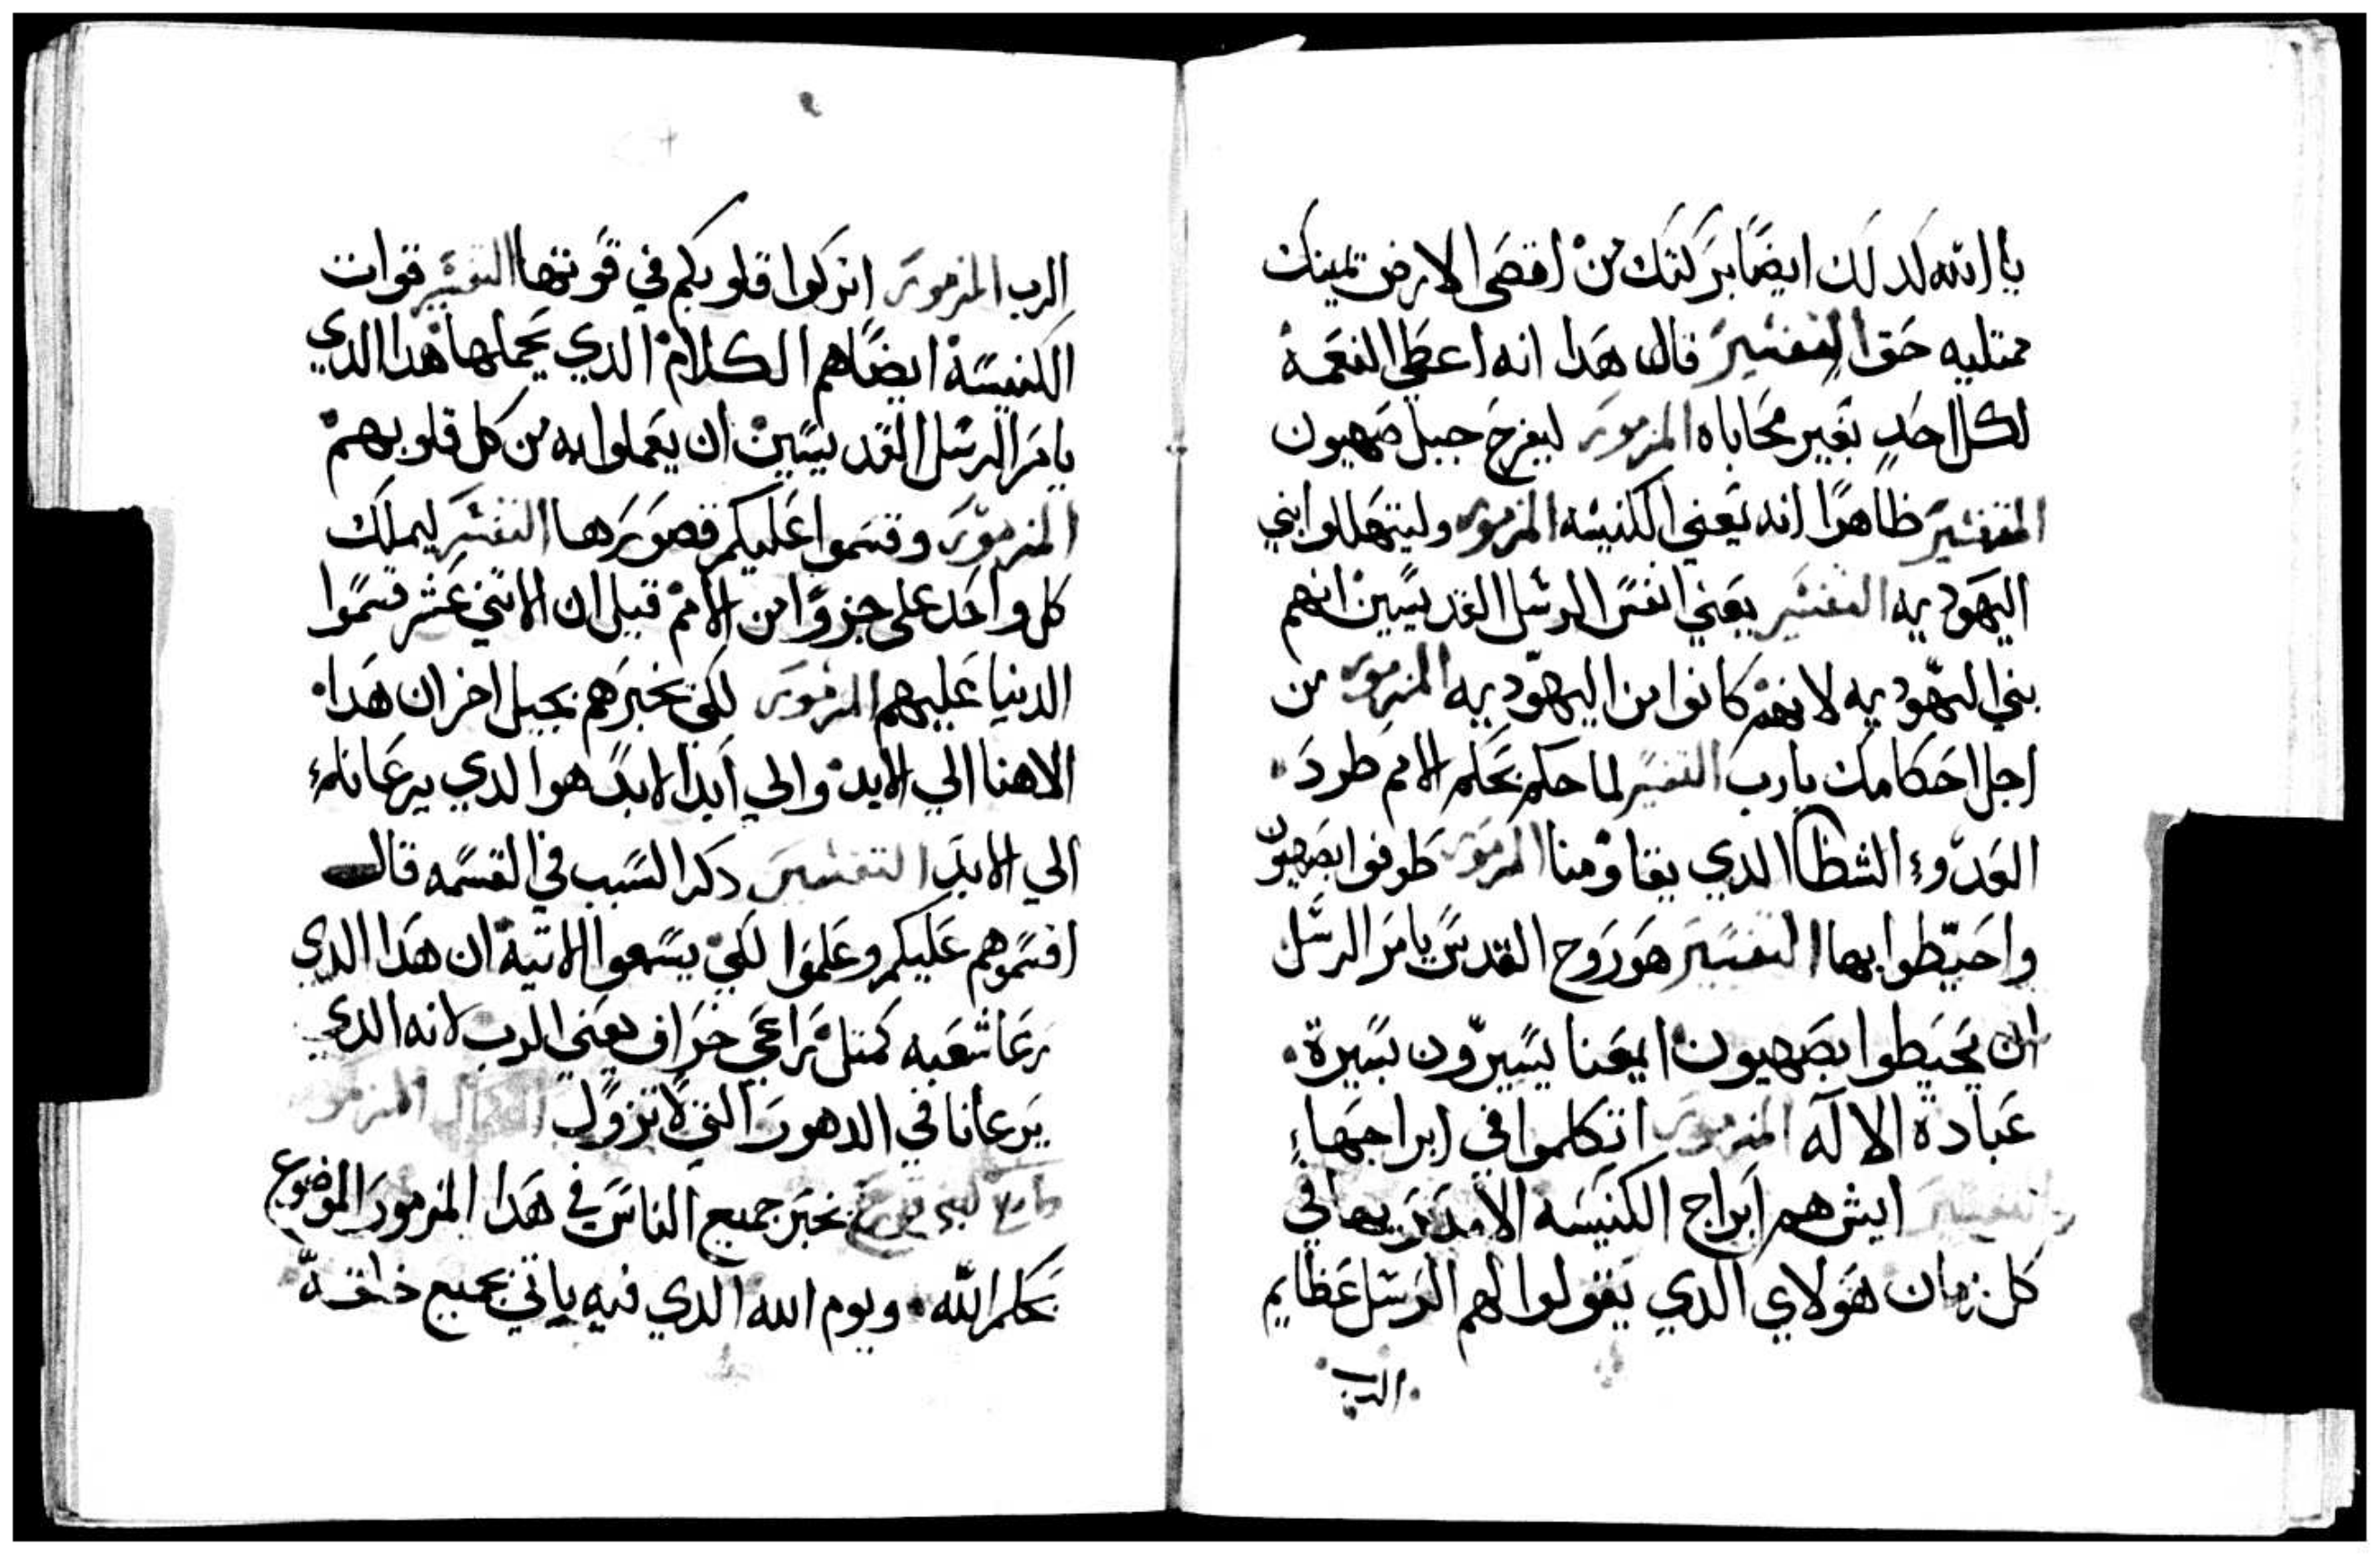 يا الله كدلك ايضًا بركتك من اقصَى الارض يمينك
ممتليه حَقا التفسير قال هَدا انه اعطي النعَمة
لكل احَدٍ بغَير محَاباه المزمور ليفرح جبل صَهيون
التفسير ظاهرًا انه يَعني الكنيسه المزمور وليتهَللوا بني
اليَهوديه التفسير يعَني انفسَ الرسَل القديسَين انهم
بني اليَهوديه لانهم كانوا من اليهوديه المزمور من
اجل احَكامك يارب التفسير لما حكم بحَكم الامم طردَ
العَدوء الشطا الدي يقاومنا المزمور طوفوا بصَهيون
واحَيطوا بها التفسير هوَ رَوح القدسَ يامَر الرسَل
ان يحَيَطوا بصَهيون ايمعَنا يسَيرون بسَيرة
عبَادة الالَه المزمور اتكلموا في ابراجهَا
التفسير ايش هم ابَراج الكنيسَه في
كل زمان هَولاي الدي يَقولوا لهم الرسَل عَظايم
الرب
الرب المزمور اتركوا قلوبكم في قوَتها التفسير قوات
الكنيسَة ايضًا هم الكلام الدي يَحملها هدا الدي
يامَر الرسَل القديسَين ان يعَملوا به من كل قلوبهم
المزمور وقسَموا عَليكم قصورَها التفسير ليملك
كل واحَد على جزوًا من الامم قبل ان الاتني عَشر قسَموا
الدنيا عَليهم المزمور لكي نخبرَهم بجيل اخر ان هَدا
الاهنا الي الابد والي ابَد الابد هوا الدي يرعَانا
الي الابدَ التفسير دكر السَبب في القسَمه قال
اقسَموهم عَليكم وعَلموَا لكي يسَمعوا الاتية ان هَدا الدي
يرعَا شعَبه كمتل رَاعَي خرَاف يعَني الرب لانه الدي
يَرعانا في الدهورَ التي لا تزوَل المزمور
نخبرَ جميع الناسَ في هَدا المزمورَ الموضوع
بحَكم الله ويوم الله الدي فيه ياتي بجميع خلقه